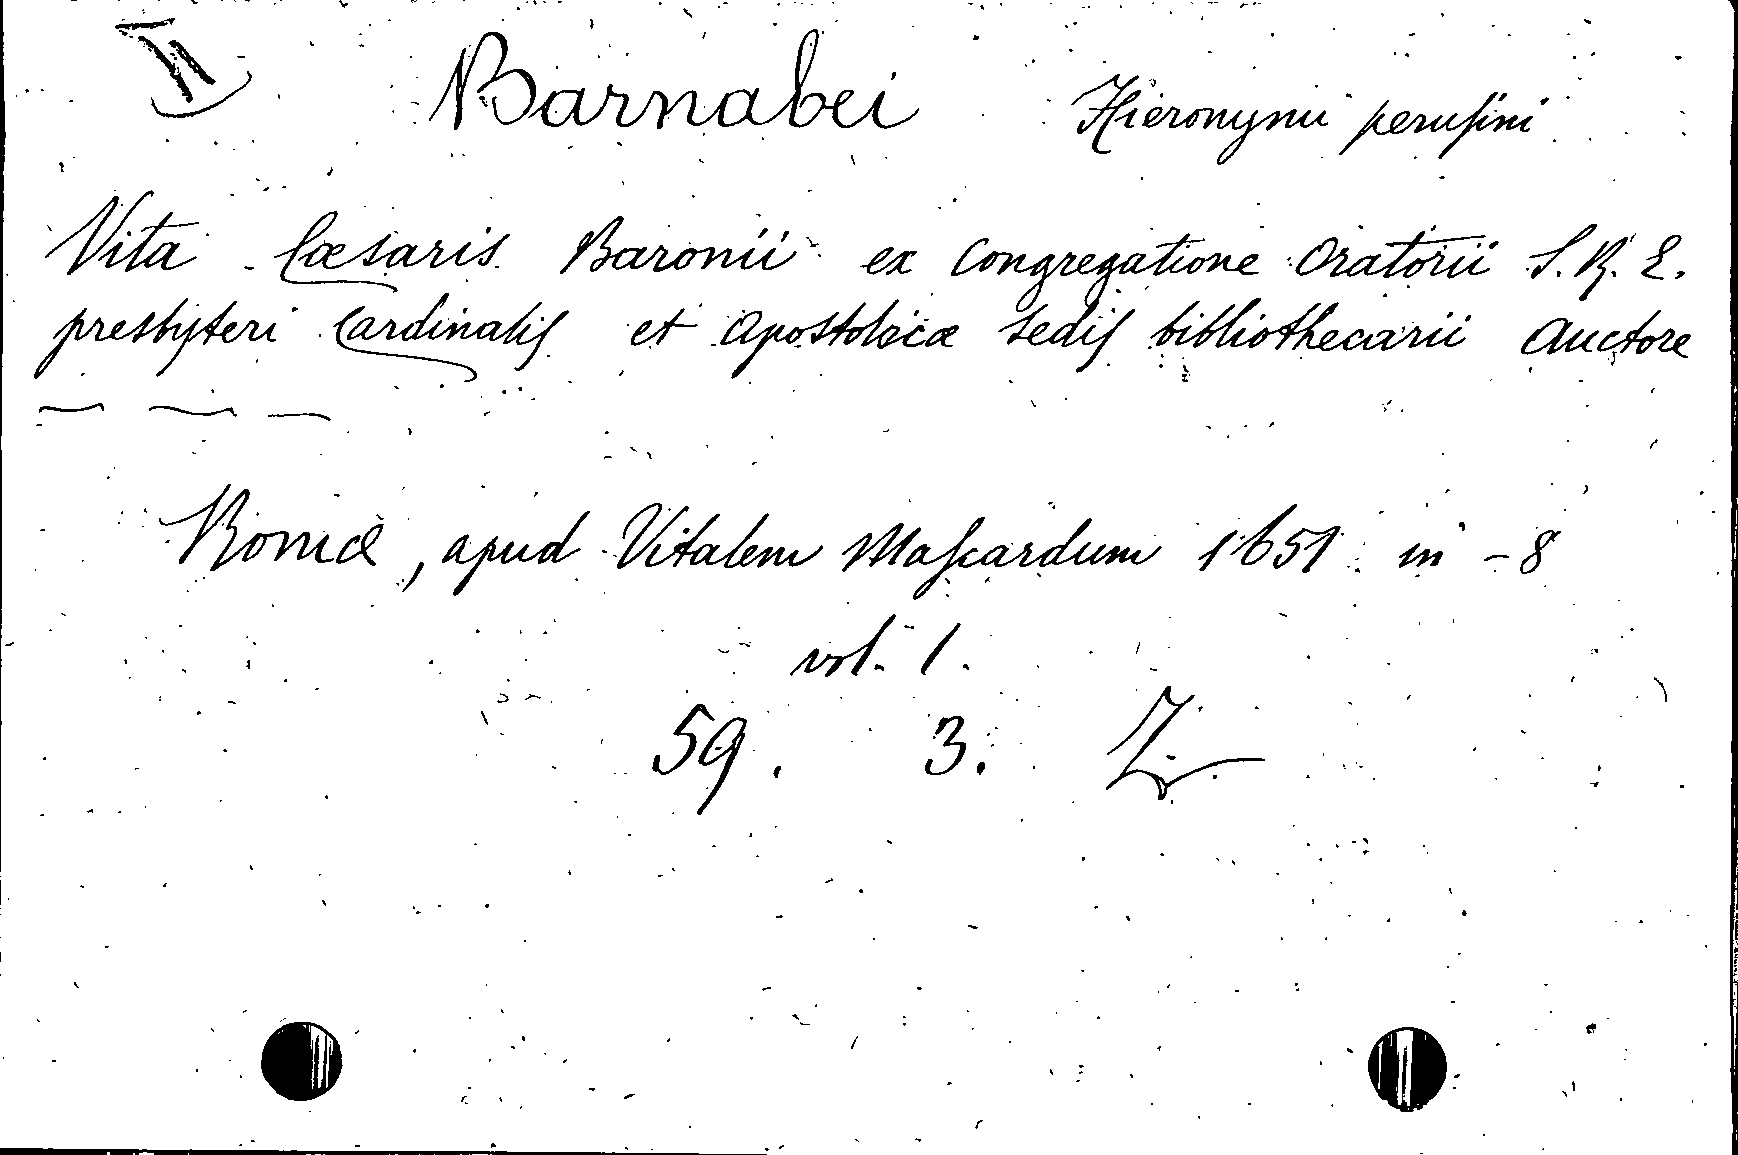 II Barnabei Hieronymi peruſini
Vita Cæsaris Baronii ex Congregatione Oratorii S. R. E.
presbyteri Cardinaliſ et Apostolicæ sediſ bibliothecarii Auctore
— — —
Romæ, apud Vitalem Maſcardum 1651 in -8
vol. 1.
59. 3. Z